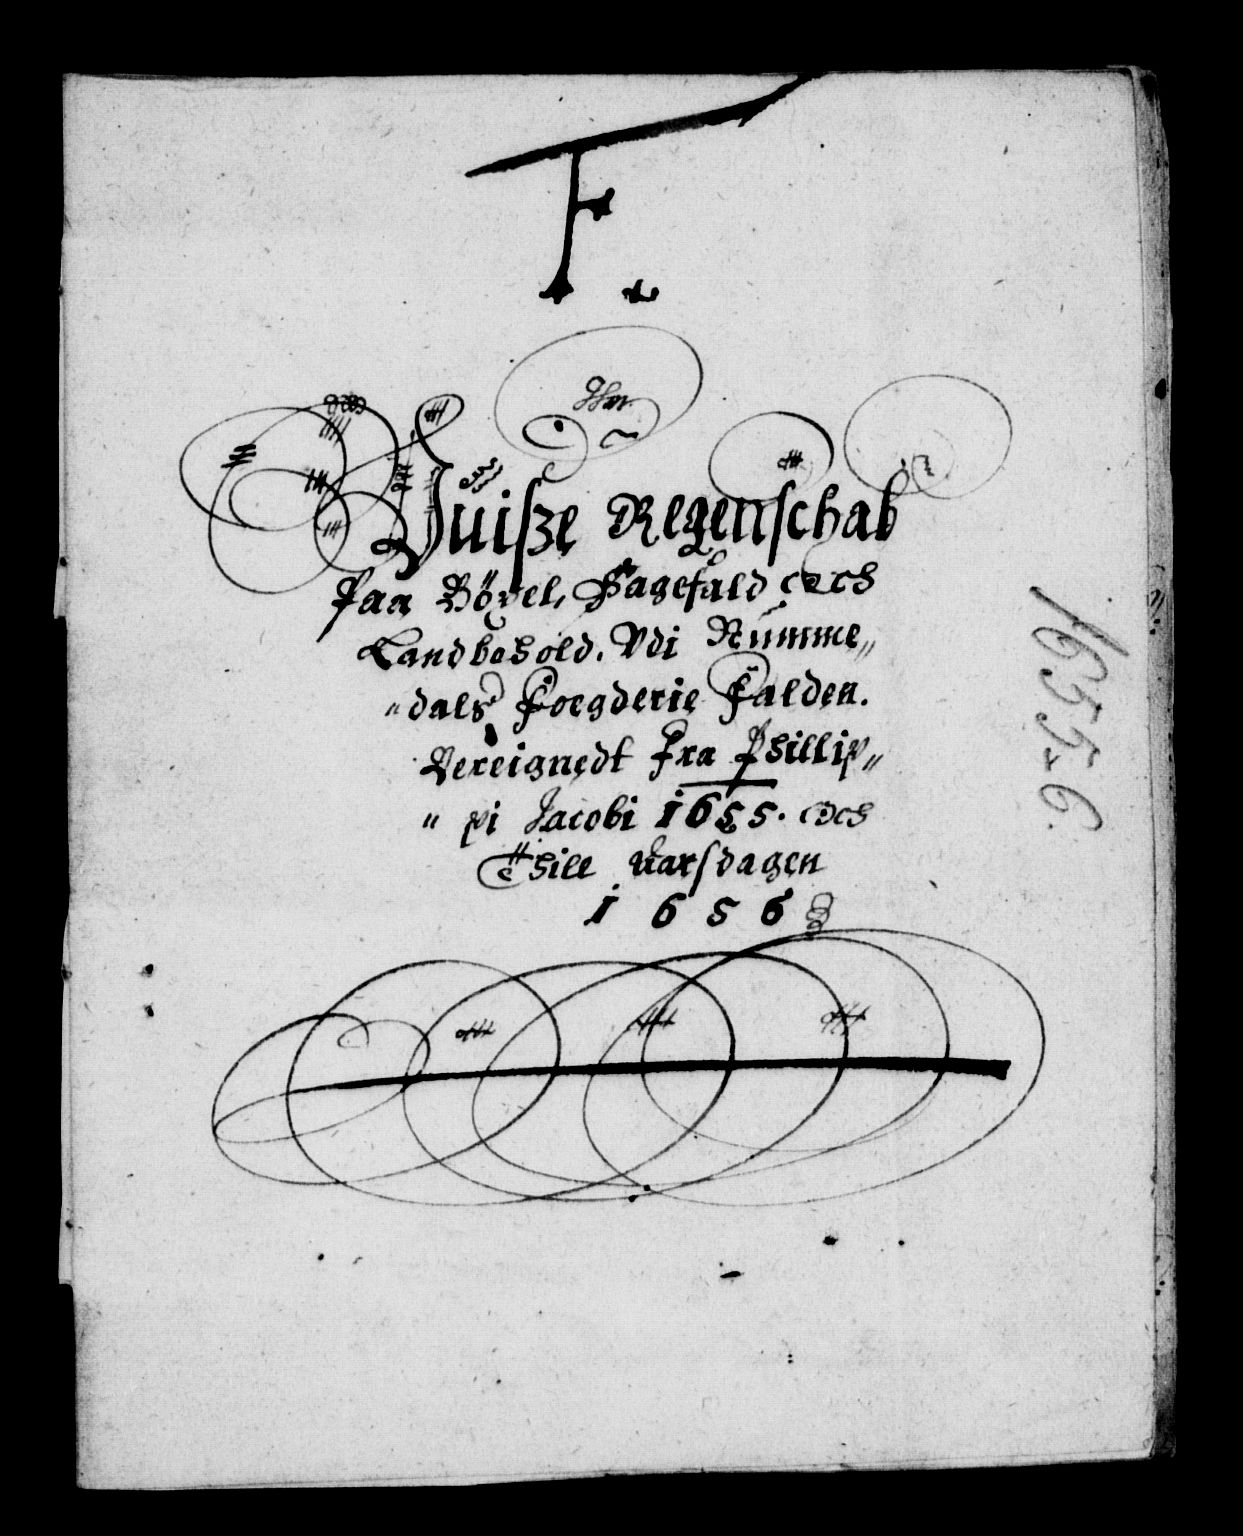 F.
Vüisze Regenschab
Paa Böxel, Sagefald och
Landbohold. Vdi Numme„
„dals Foegderie Falden.
Bereignedt fra Phillip„
„pi Jacobi 1655. och
Thill Aarsdagen
1656
1655-6.